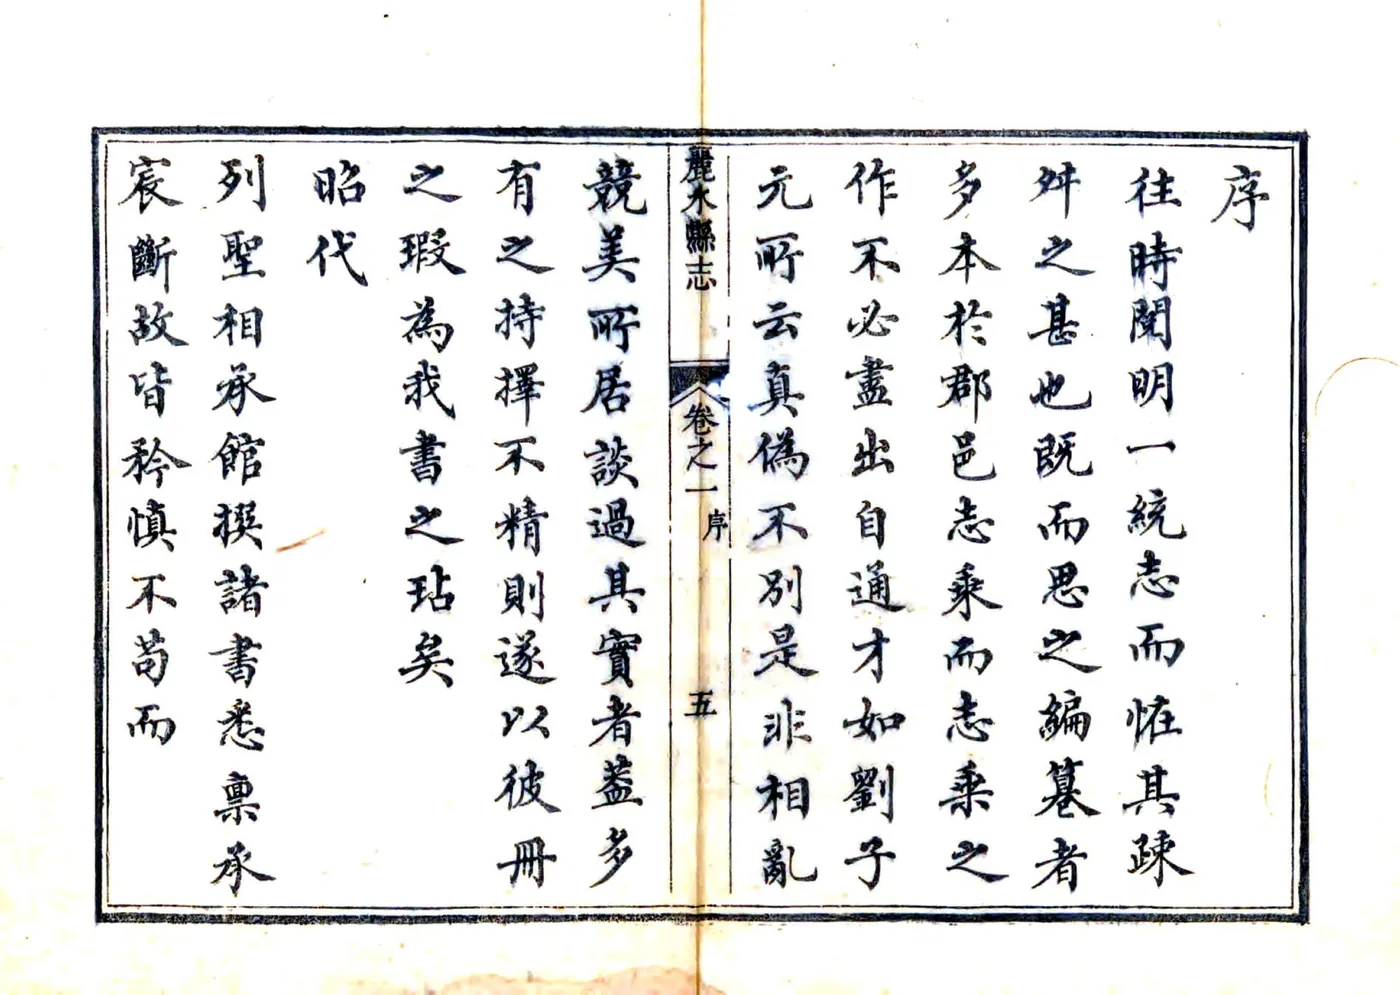 序
往時閱明一統志而恠其疎
舛之甚也既而思之編纂者
多本於郡邑志乘而志乘之
作不必盡出自通才如劉子
元所云真偽不別是非相亂
麗水縣志
卷之一
序
五
競美所居談過其實者葢多
有之持擇不精則遂以彼冊
之瑕為我書之玷矣
昭代
列聖相承館撰諸書悉稟承
宸斷故皆矜慎不苟而